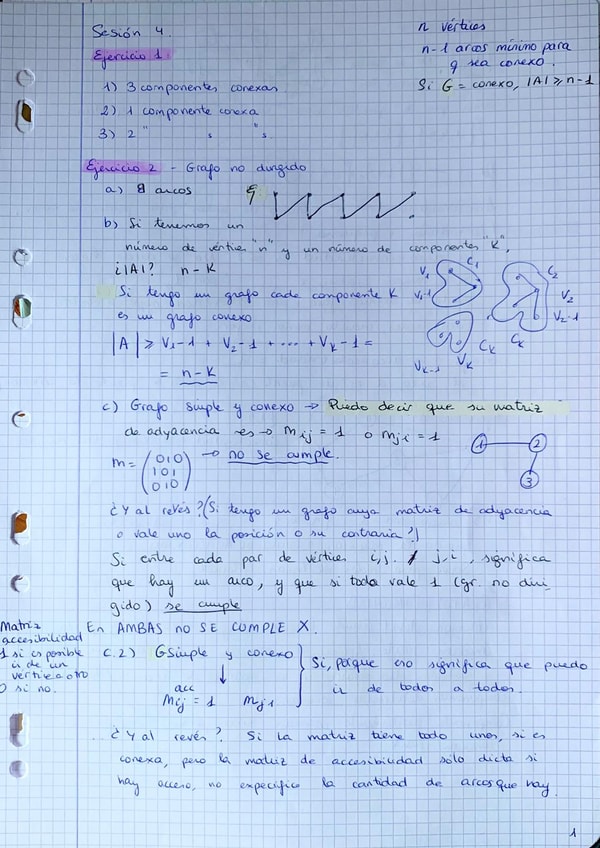 Sesión 4.
n vértices
n-1 arcos mínimo para
q sea conexo.
Si G = conexo, |A| ≥ n-1
Ejercicio 1:
1) 3 componentes conexas
2) 1 componente conexa
3) 2 " s "s.
Ejercicio 2 - Grafo no dirigido
a) 8 arcos
b) Si tenemos un
número de vértice "n" y un número de componentes "K",
¿|A|? n-K
Si tengo un grafo cada componente K
es un grafo conexo
|A| ≥ V1-1 + V2-1 + ... + VK-1 =
= n-K
V1 C1
V1-1
C2
V2
V2-1
CK
CK
VK-1 VK
c) Grafo simple y conexo → Puedo decir que su matriz
de adyacencia es → mij = 1 o mji = 1
m = (010
101
010) → no se cumple.
1 2
3
¿Y al revés? (Si tengo un grafo cuya matriz de adyacencia
o vale uno la posición o su contraria?)
Si entre cada par de vértices i,j. / j,i, significa
que hay un arco, y que si toda vale 1 (gr. no diri
gido) se cumple
En AMBAS NO SE CUMPLE X.
Matriz
accesibilidad
1 si es posible
ir de un
vértice a otro
0 si no.
C.2) G Simple y conexo
acc
Mij = 1 Mji
Si, porque eso significa que puedo
ir de todos a todos.
¿Y al revés? Si la matriz tiene todo unos, si es
conexa, pero la matriz de accesibilidad sólo dicta si
hay acceso, no especifica la cantidad de arcos que hay.
1